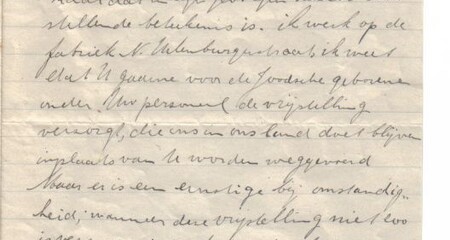 stellende betekenis is. ik werk op de
fabriek N. Uilenburgerstraat, ik weet
dat U gaarne voor de Joodsche geborene
onder Uw personeel de vrijstelling
verzorgt, die ons in ons land doet blijven
inplaats van te worden weggevoerd
Maar er is een ernstige bij omstandig„
heid, wanneer deze vrijstelling niet zoo